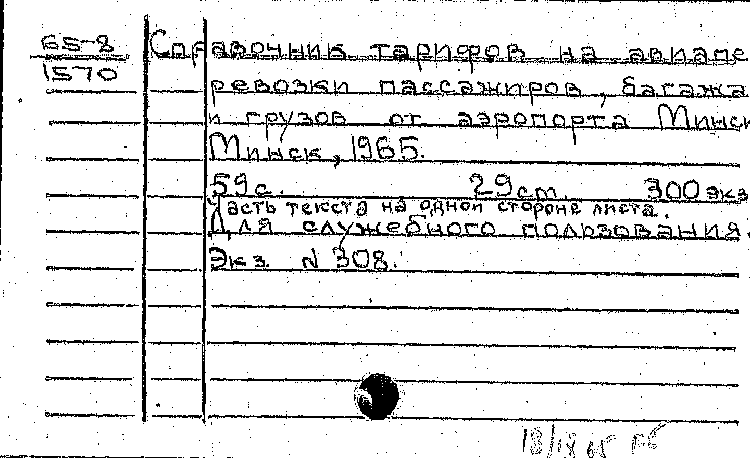 65-8
1570
Справочник тарифов на авиапе
ревозки пассажиров, багажа
и грузов от аэропорта Минск
Минск, 1965.
59 с. 29 ст. 300 экз
Часть текста на одной стороне листа.
Для служебного пользования.
Экз. N 308.
18/18 65